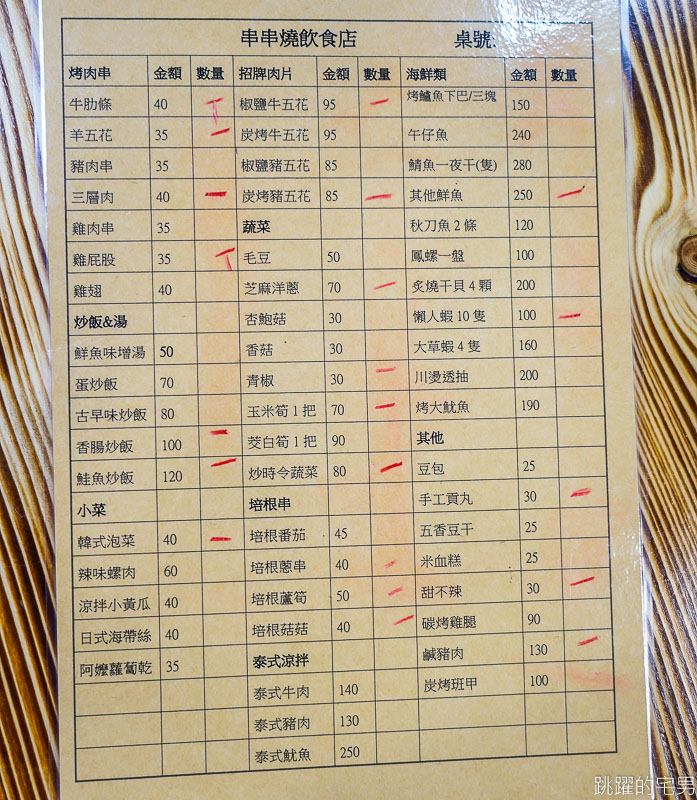 串串燒飲食店 桌號:
烤肉串 金額 數量 招牌肉片 金額 數量 海鮮類 金額 數量
牛肋條 40 椒鹽牛五花 95 烤鱸魚下巴/三塊 150
羊五花 35 炭烤牛五花 95 午仔魚 240
豬肉串 35 椒鹽豬五花 85 鯖魚一夜干(隻) 280
三層肉 40 炭烤豬五花 85 其他鮮魚 250
雞肉串 35 蔬菜 秋刀魚 2 條 120
雞屁股 35 毛豆 50 鳳螺一盤 100
雞翅 40 芝麻洋蔥 70 炙燒干貝 4 顆 200
炒飯&湯 杏鮑菇 30 懶人蝦 10 隻 100
鮮魚味增湯 50 香菇 30 大草蝦 4 隻 160
蛋炒飯 70 青椒 30 川燙透抽 200
古早味炒飯 80 玉米筍 1 把 70 烤大魷魚 190
香腸炒飯 100 茭白筍 1 把 90 其他
鮭魚炒飯 120 炒時令蔬菜 80 豆包 25
小菜 培根串 手工貢丸 30
韓式泡菜 40 培根番茄 45 五香豆干 25
辣味螺肉 60 培根蔥串 40 米血糕 25
涼拌小黃瓜 40 培根蘆筍 50 甜不辣 30
日式海帶絲 40 培根菇菇 40 碳烤雞腿 90
阿嬤蘿蔔乾 35 泰式涼拌 鹹豬肉 130
泰式牛肉 140 炭烤班甲 100
泰式豬肉 130
泰式魷魚 250
跳躍的宅男